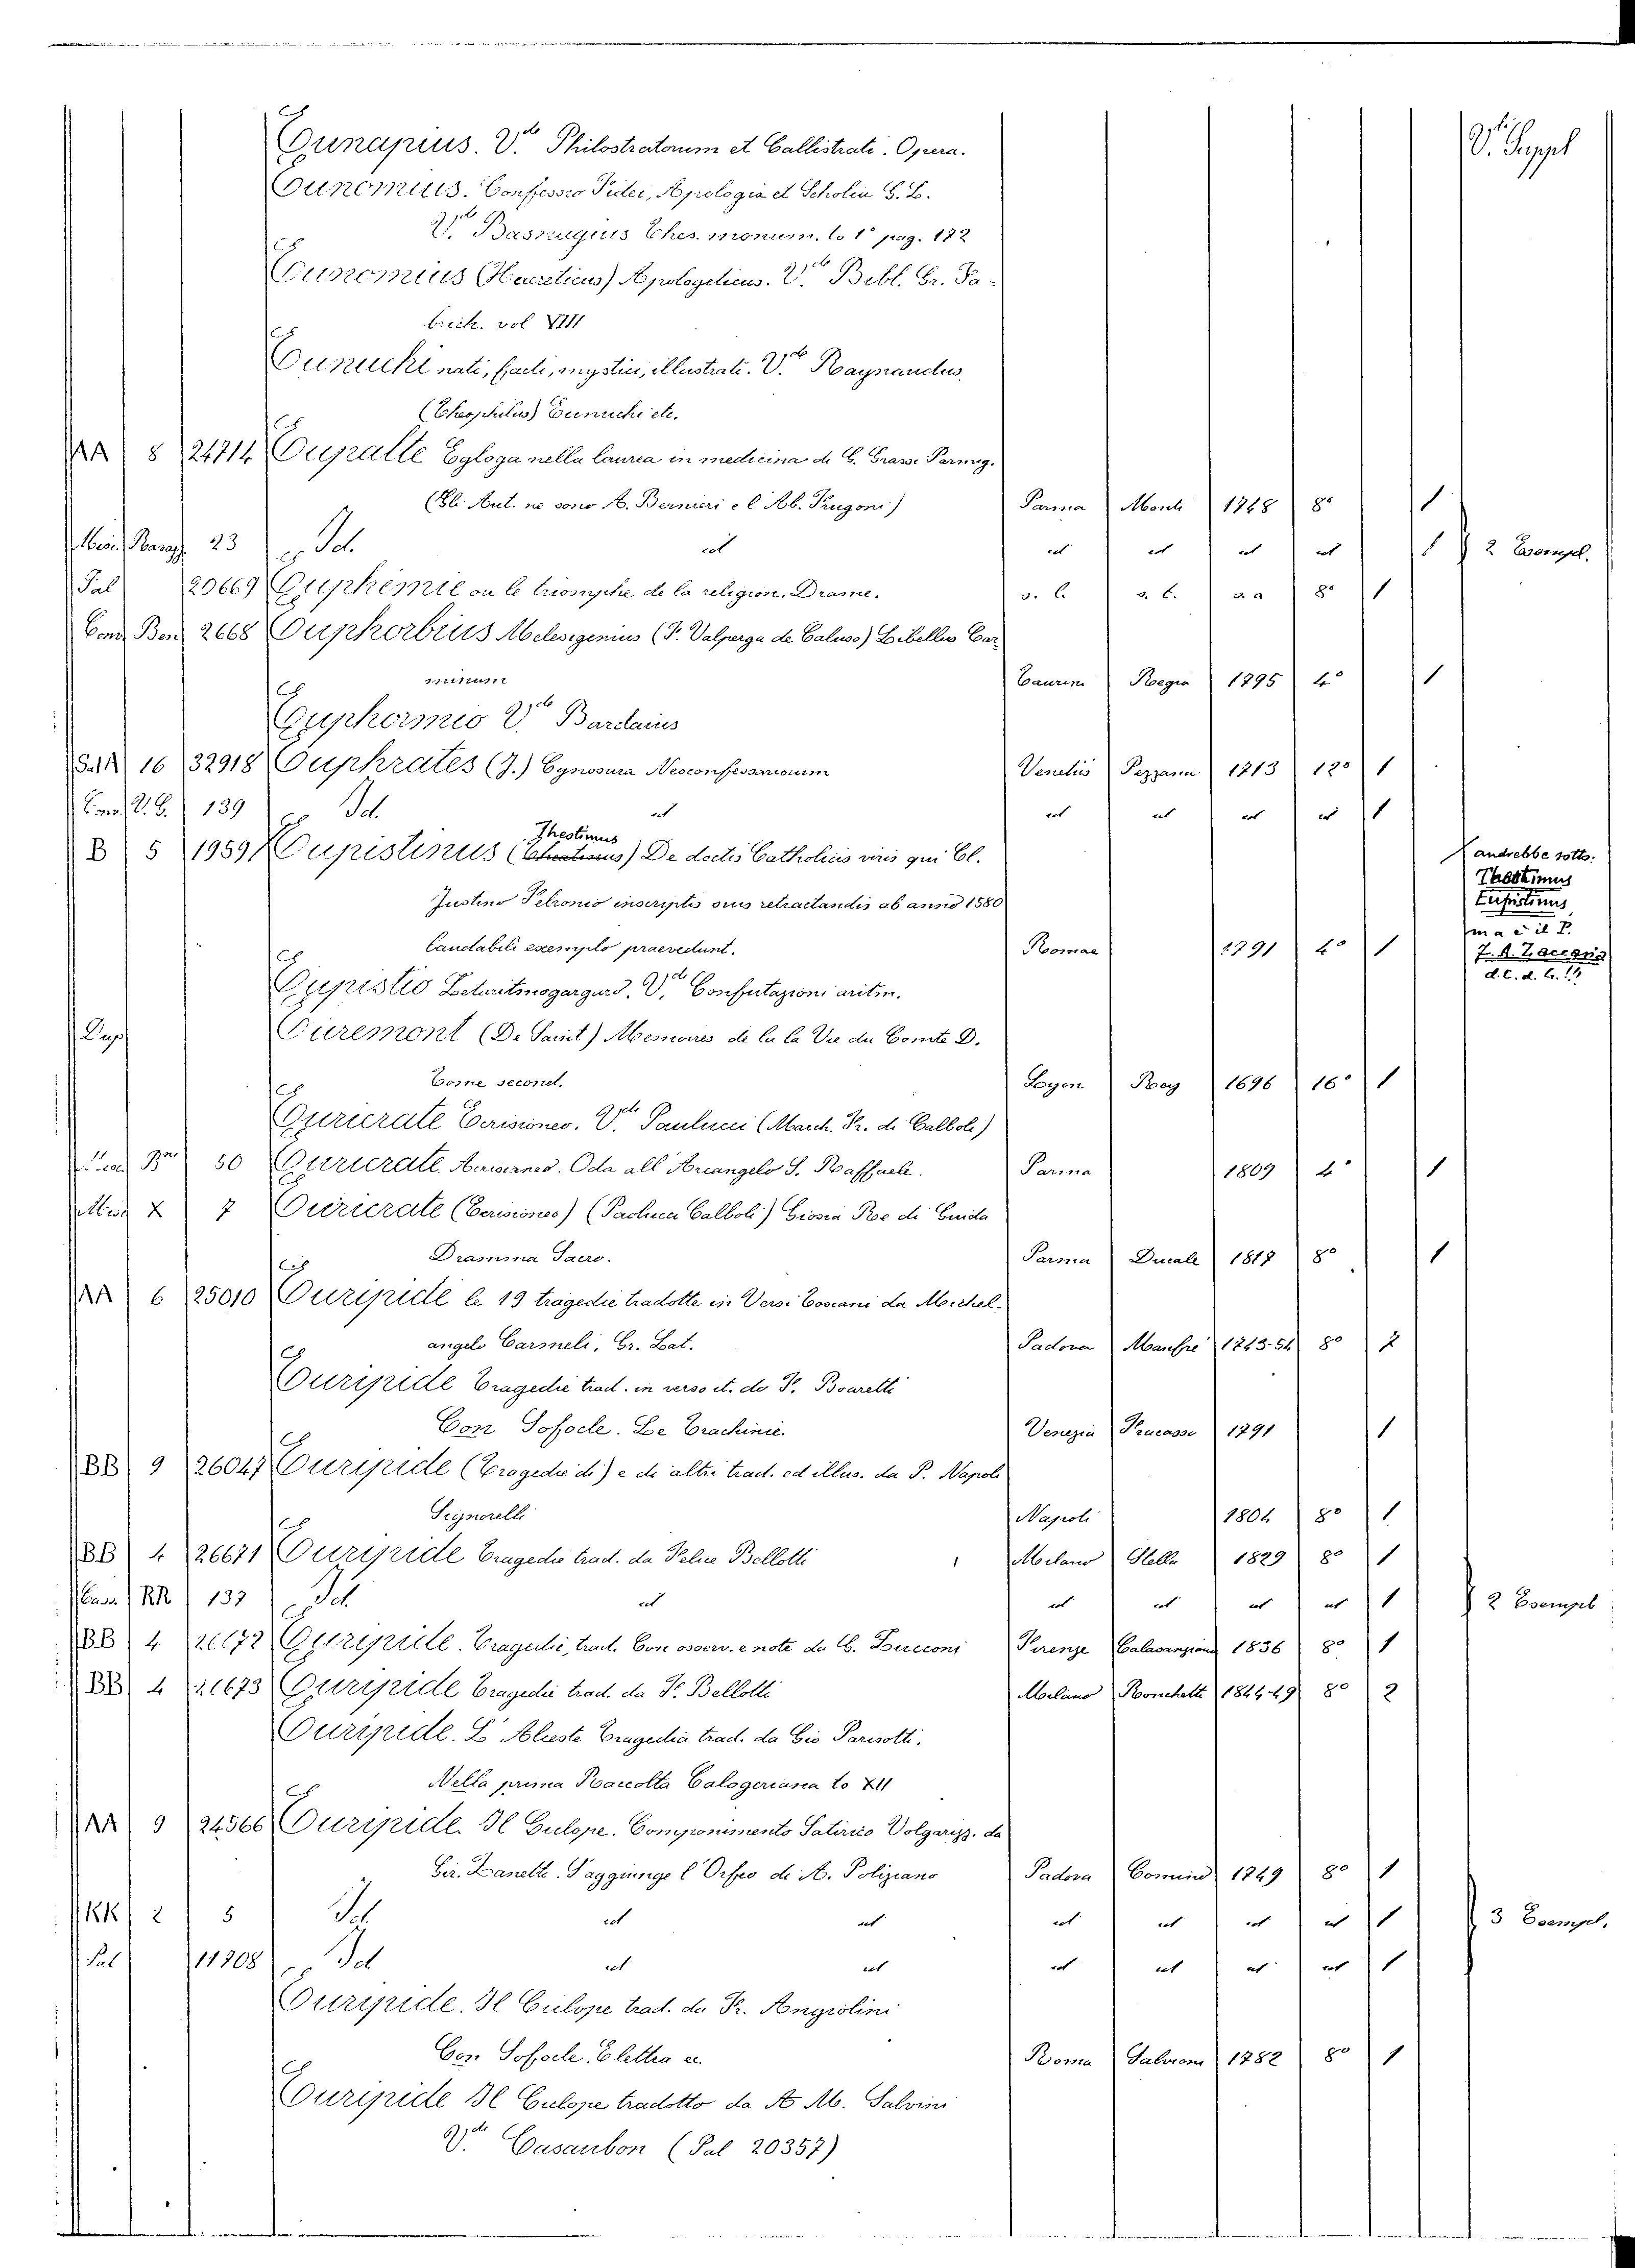 V. Suppl
Eunapius. V.de Philostratorum et Callistrati. Opera.
Eunomius. Confessio Fidei, Apologia et Scholia G. L.
V.de Basnagius Thes. monum. to 1° pag. 172
Eunomius (Haereticus) Apologeticus. V.de Bibl. Gr. Fa-
bricii. vol VIII
Eunuchi nati, facti, mystici, illustrati. V.de Raynaudus,
(Theophilus) Eunuchi etc.
AA 8 24714 Eupalte Egloga nella laurea in medicina di G. Grassi Parmig.
(Gli Aut. ne sono A. Bernieri e l'Ab. Frugoni) Parma Monti 1768 8° 1
Misc. 23 Id. id id id id id 1 2 Esempl.
Pal 20669 Euphémie ou le triomphe de la religion. Drame. s. l. s. t. s. a 8° 1
Bon 2668 Euphorbius Melesigenius (T. Valperga de Caluso) Libellus Car-
minum Taurini Regia 1795 4° 1
Euphormio V.de Barclaius
16 32918 Euphrates (J.) Cynosura Neoconfessariorum Venetiis Pezzana 1713 12° 1
V. G. 139 Id. id id id id id 1
B 5 19591 Eupistinus (Thestimus) De doctis Catholicis viris qui Cl.
Justino Febronio inscriptis suis retractandis ab anno 1580
laudabili exemplo praeverunt. Romae 1791 4° 1
andrebbe sotto:
Theotimus
Eupistinus
ma è il P.
F. A. Zaccaria
d. C. d. G. !!
Eupistio Leturitmogargard. V.de Confutazioni aritm.
Dup Euremont (De Saint) Memoires de la la Vie du Comte D.
Tome second. Lyon Rey 1696 16° 1
Euricrate Terisioneo. V.de Paulucci (March. Fr. di Calboli)
50 Euricrate Oda all'Arcangelo S. Raffaele. Parma 1809 4° 1
Misc X 7 Euricrate (Terisioneo) (Calboli) Giosia Re di Giuda
Dramma Sacro. Parma Ducale 1817 8° 1
AA 6 25010 Euripide le 19 tragedie tradotte in Versi Toscani da Michel-
angelo Carmeli, Gr. Lat. Padova Manfrè 1743-54 8° 7
Euripide Tragedie trad. in verso it. da F. Boaretti
Con Sofocle. Le Trachinie. Venezia Fracasso 1791 1
BB 9 26047 Euripide (Tragedie di) e di altri trad. ed illus. da P. Napoli
Signorelli Napoli 1804 8° 1
BB 4 26671 Euripide Tragedie trad. da Felice Bellotti Milano Stella 1829 8° 1
Cass. RR 137 Id. id id id id id 1 2 Esempl
BB 4 26672 Euripide. Tragedie, trad. Con osserv. e note da G. Zucconi Firenze Calasanziana 1836 8° 1
BB 4 26673 Euripide Tragedie trad. da F. Bellotti Milano Ronchetti 1844-49 8° 2
Euripide. L'Alceste Tragedia trad. da Gio Parisotti.
Nella prima Raccolta Calogeriana to XII
AA 9 24566 Euripide. Il Ciclope. Componimento Satirico Volgarizz. da
Gir. Zanetti. S'aggiunge l'Orfeo di A. Poliziano Padova Comino 1749 8° 1
KK 2 5 Id. id id id id id id 1 3 Esempl.
Pal 11708 Id id id id id id id 1
Euripide. Il Ciclope trad. da Fr. Angiolini
Con Sofocle. Elettra ec. Roma Salvioni 1782 8° 1
Euripide Il Ciclope tradotto da A M. Salvini
V.de Casaubon (Pal 20357)